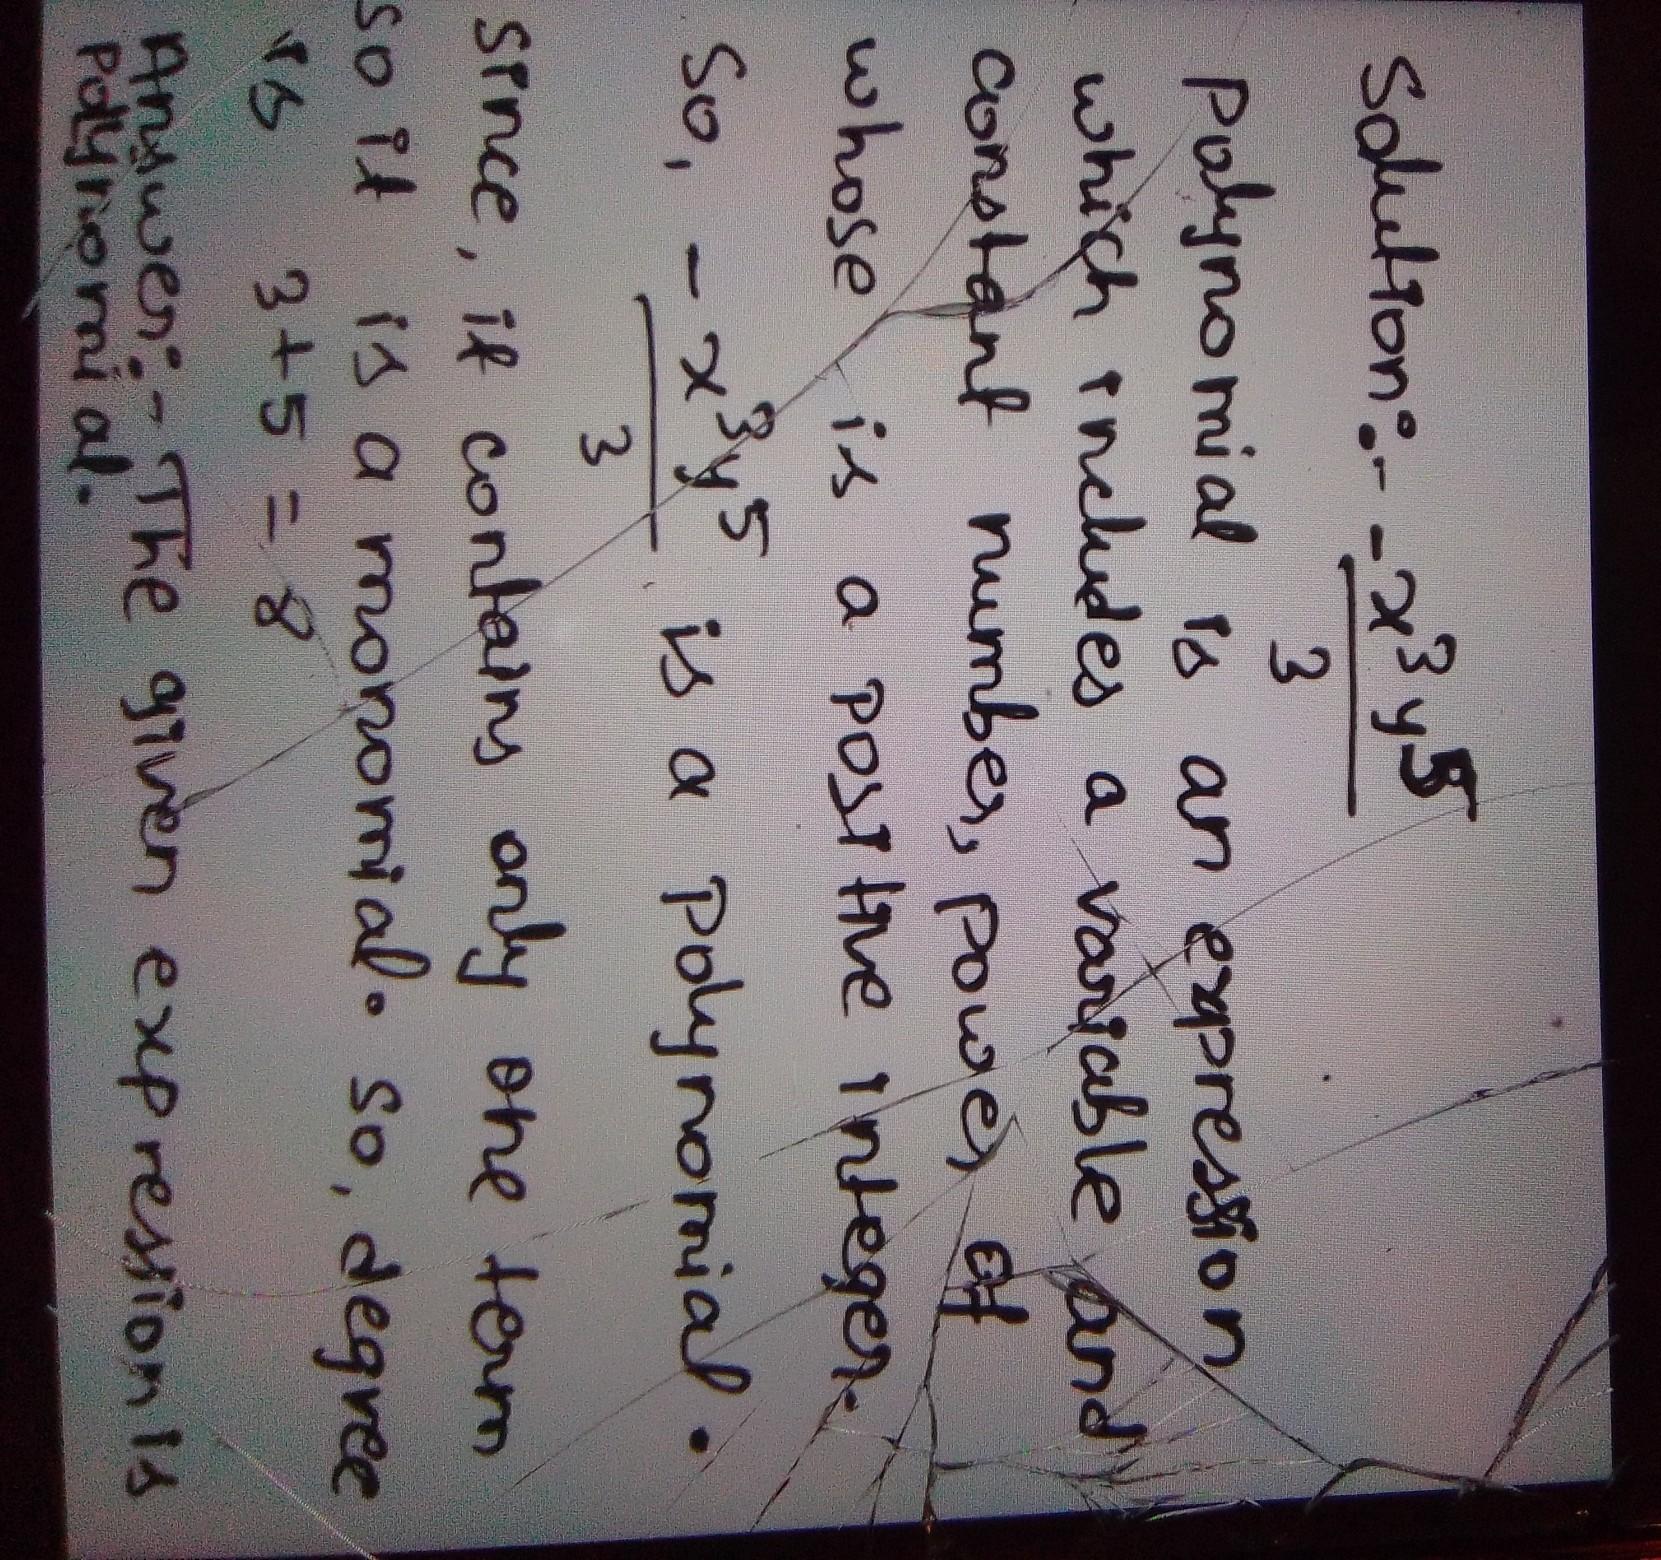 Solution:- -x³y⁵
3
Polynomial is an expression
which includes a variable and
constant number, power of
whose is a positive integer.
So, -x³y⁵ is a polynomial.
3
Since, it contains only one term
so it is a monomial. So, degree
is 3+5 = 8
Answer:- The given expression is
polynomial.